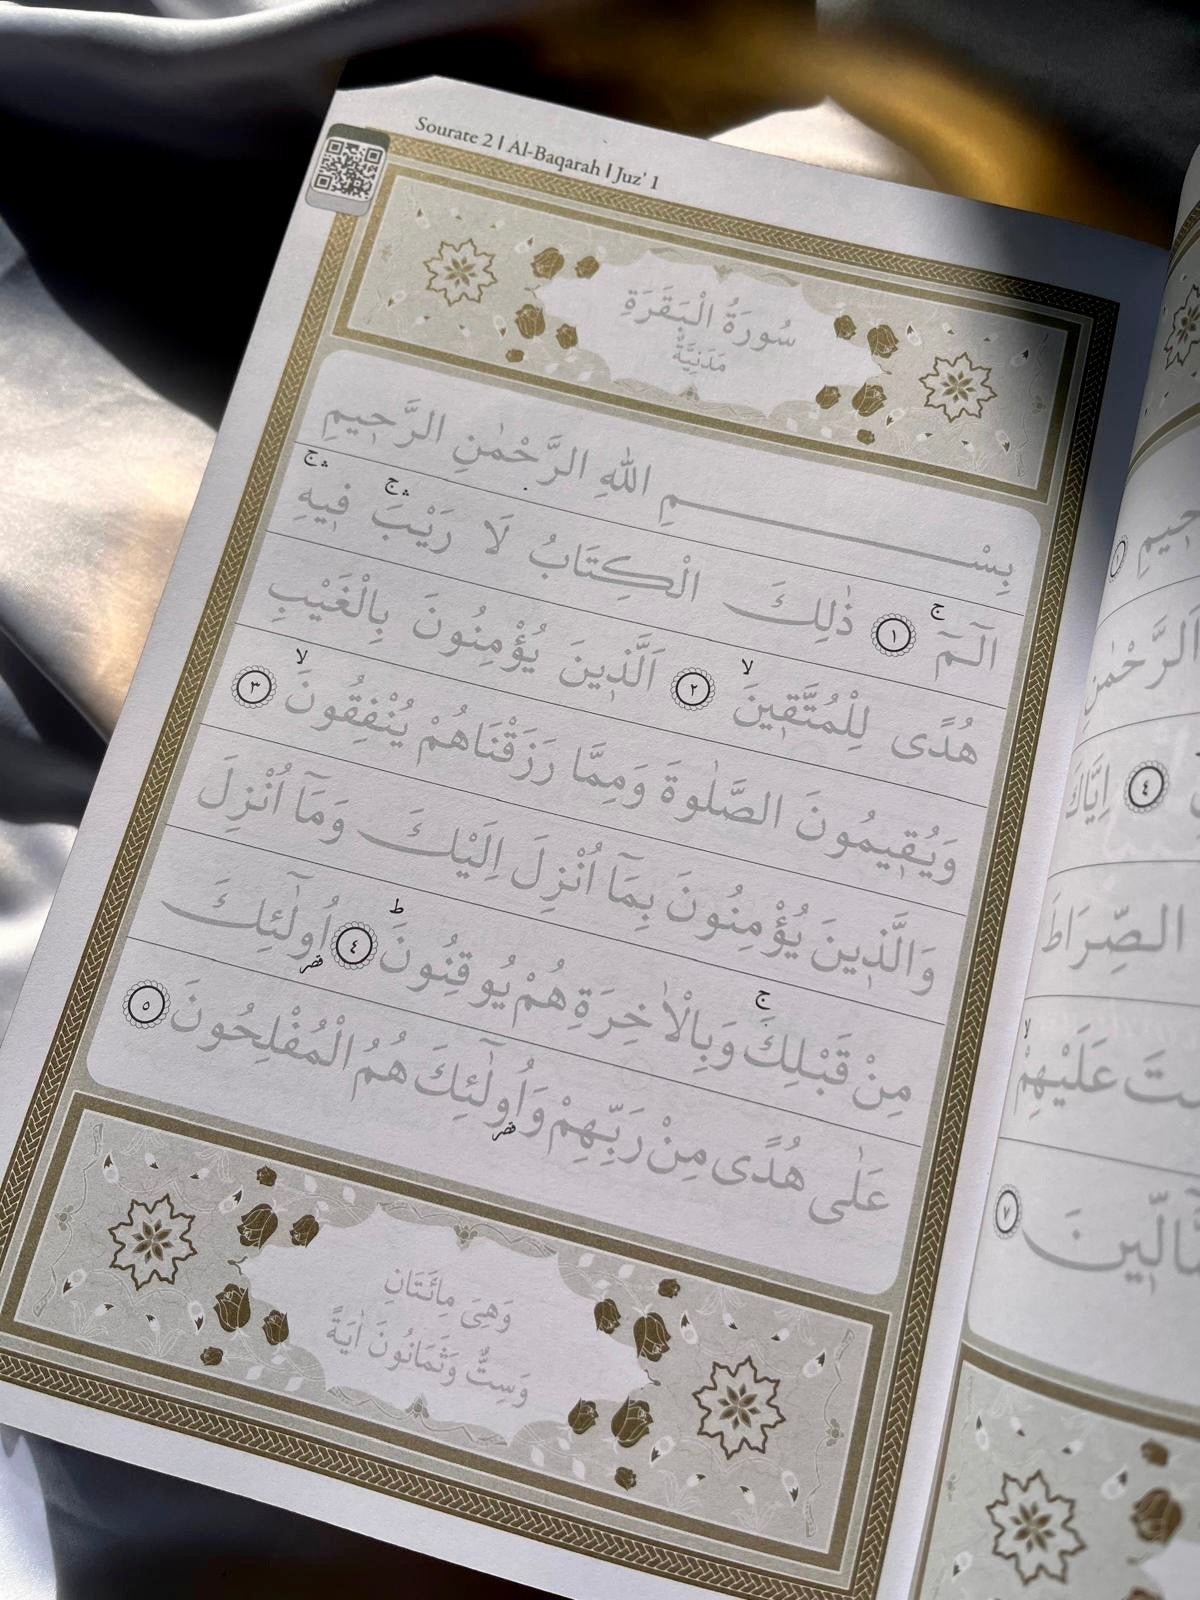 Sourate 2 | Al-Baqarah | Juz' 1
سُورَةُ الْبَقَرَةِ
مَدَنِيَّةٌ
بِسْمِ اللهِ الرَّحْمٰنِ الرَّحِيمِ
الٓمٓ ۚ ١ ذٰلِكَ الْكِتَابُ لَا رَيْبَ ۛۚ فِيهِ ۛۚ
هُدًى لِلْمُتَّقِينَ ۙ ٢ اَلَّذِينَ يُؤْمِنُونَ بِالْغَيْبِ
وَيُقِيمُونَ الصَّلٰوةَ وَمِمَّا رَزَقْنَاهُمْ يُنْفِقُونَ ۙ ٣
وَالَّذِينَ يُؤْمِنُونَ بِمَٓا اُنْزِلَ اِلَيْكَ وَمَٓا اُنْزِلَ
مِنْ قَبْلِكَ ۚ وَبِالْاٰخِرَةِ هُمْ يُوقِنُونَ ۜ ط ٤ اُو۬لٰٓئِكَ
عَلٰى هُدًى مِنْ رَبِّهِمْ وَاُو۬لٰٓئِكَ هُمُ الْمُفْلِحُونَ ٥
وَهِىَ مِائَتَانِ
وَسِتٌّ وَثَمَانُونَ اٰيَةً
حِيمِ ١
الرَّحْمٰنِ
٤ اِيَّاكَ
الصِّرَاطَ
عَلَيْهِمْ ۙ
٧